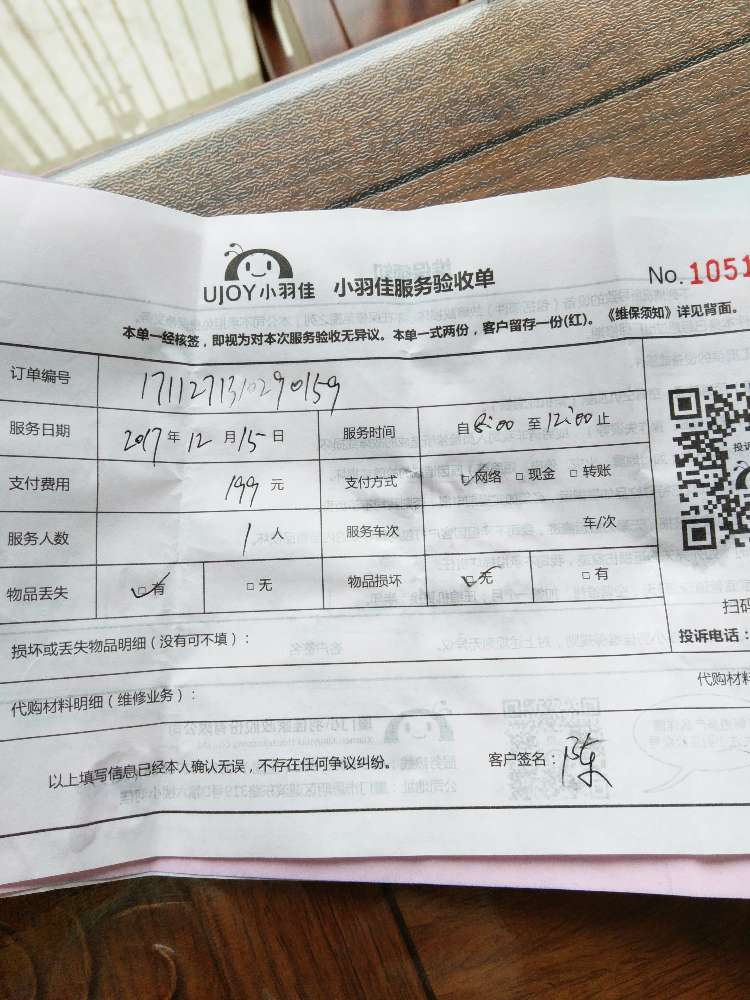 UJOY小羽佳 小羽佳服务验收单 No.1051
本单一经核签，即视为对本次服务验收无异议。本单一式两份，客户留存一份(红)。《维保须知》详见背面。
订单编号 1711271310290159
服务日期 2017年12月15日 服务时间 自8:00至12:00止
支付费用 199元 支付方式 网络 □现金 □转账
服务人数 1人 服务车次 车/次
物品丢失 □有 □无 物品损坏 □无 □有
扫码
损坏或丢失物品明细（没有可不填）： 投诉电话：
代购材料明细（维修业务）： 代购材料
以上填写信息已经本人确认无误，不存在任何争议纠纷。 客户签名：陈